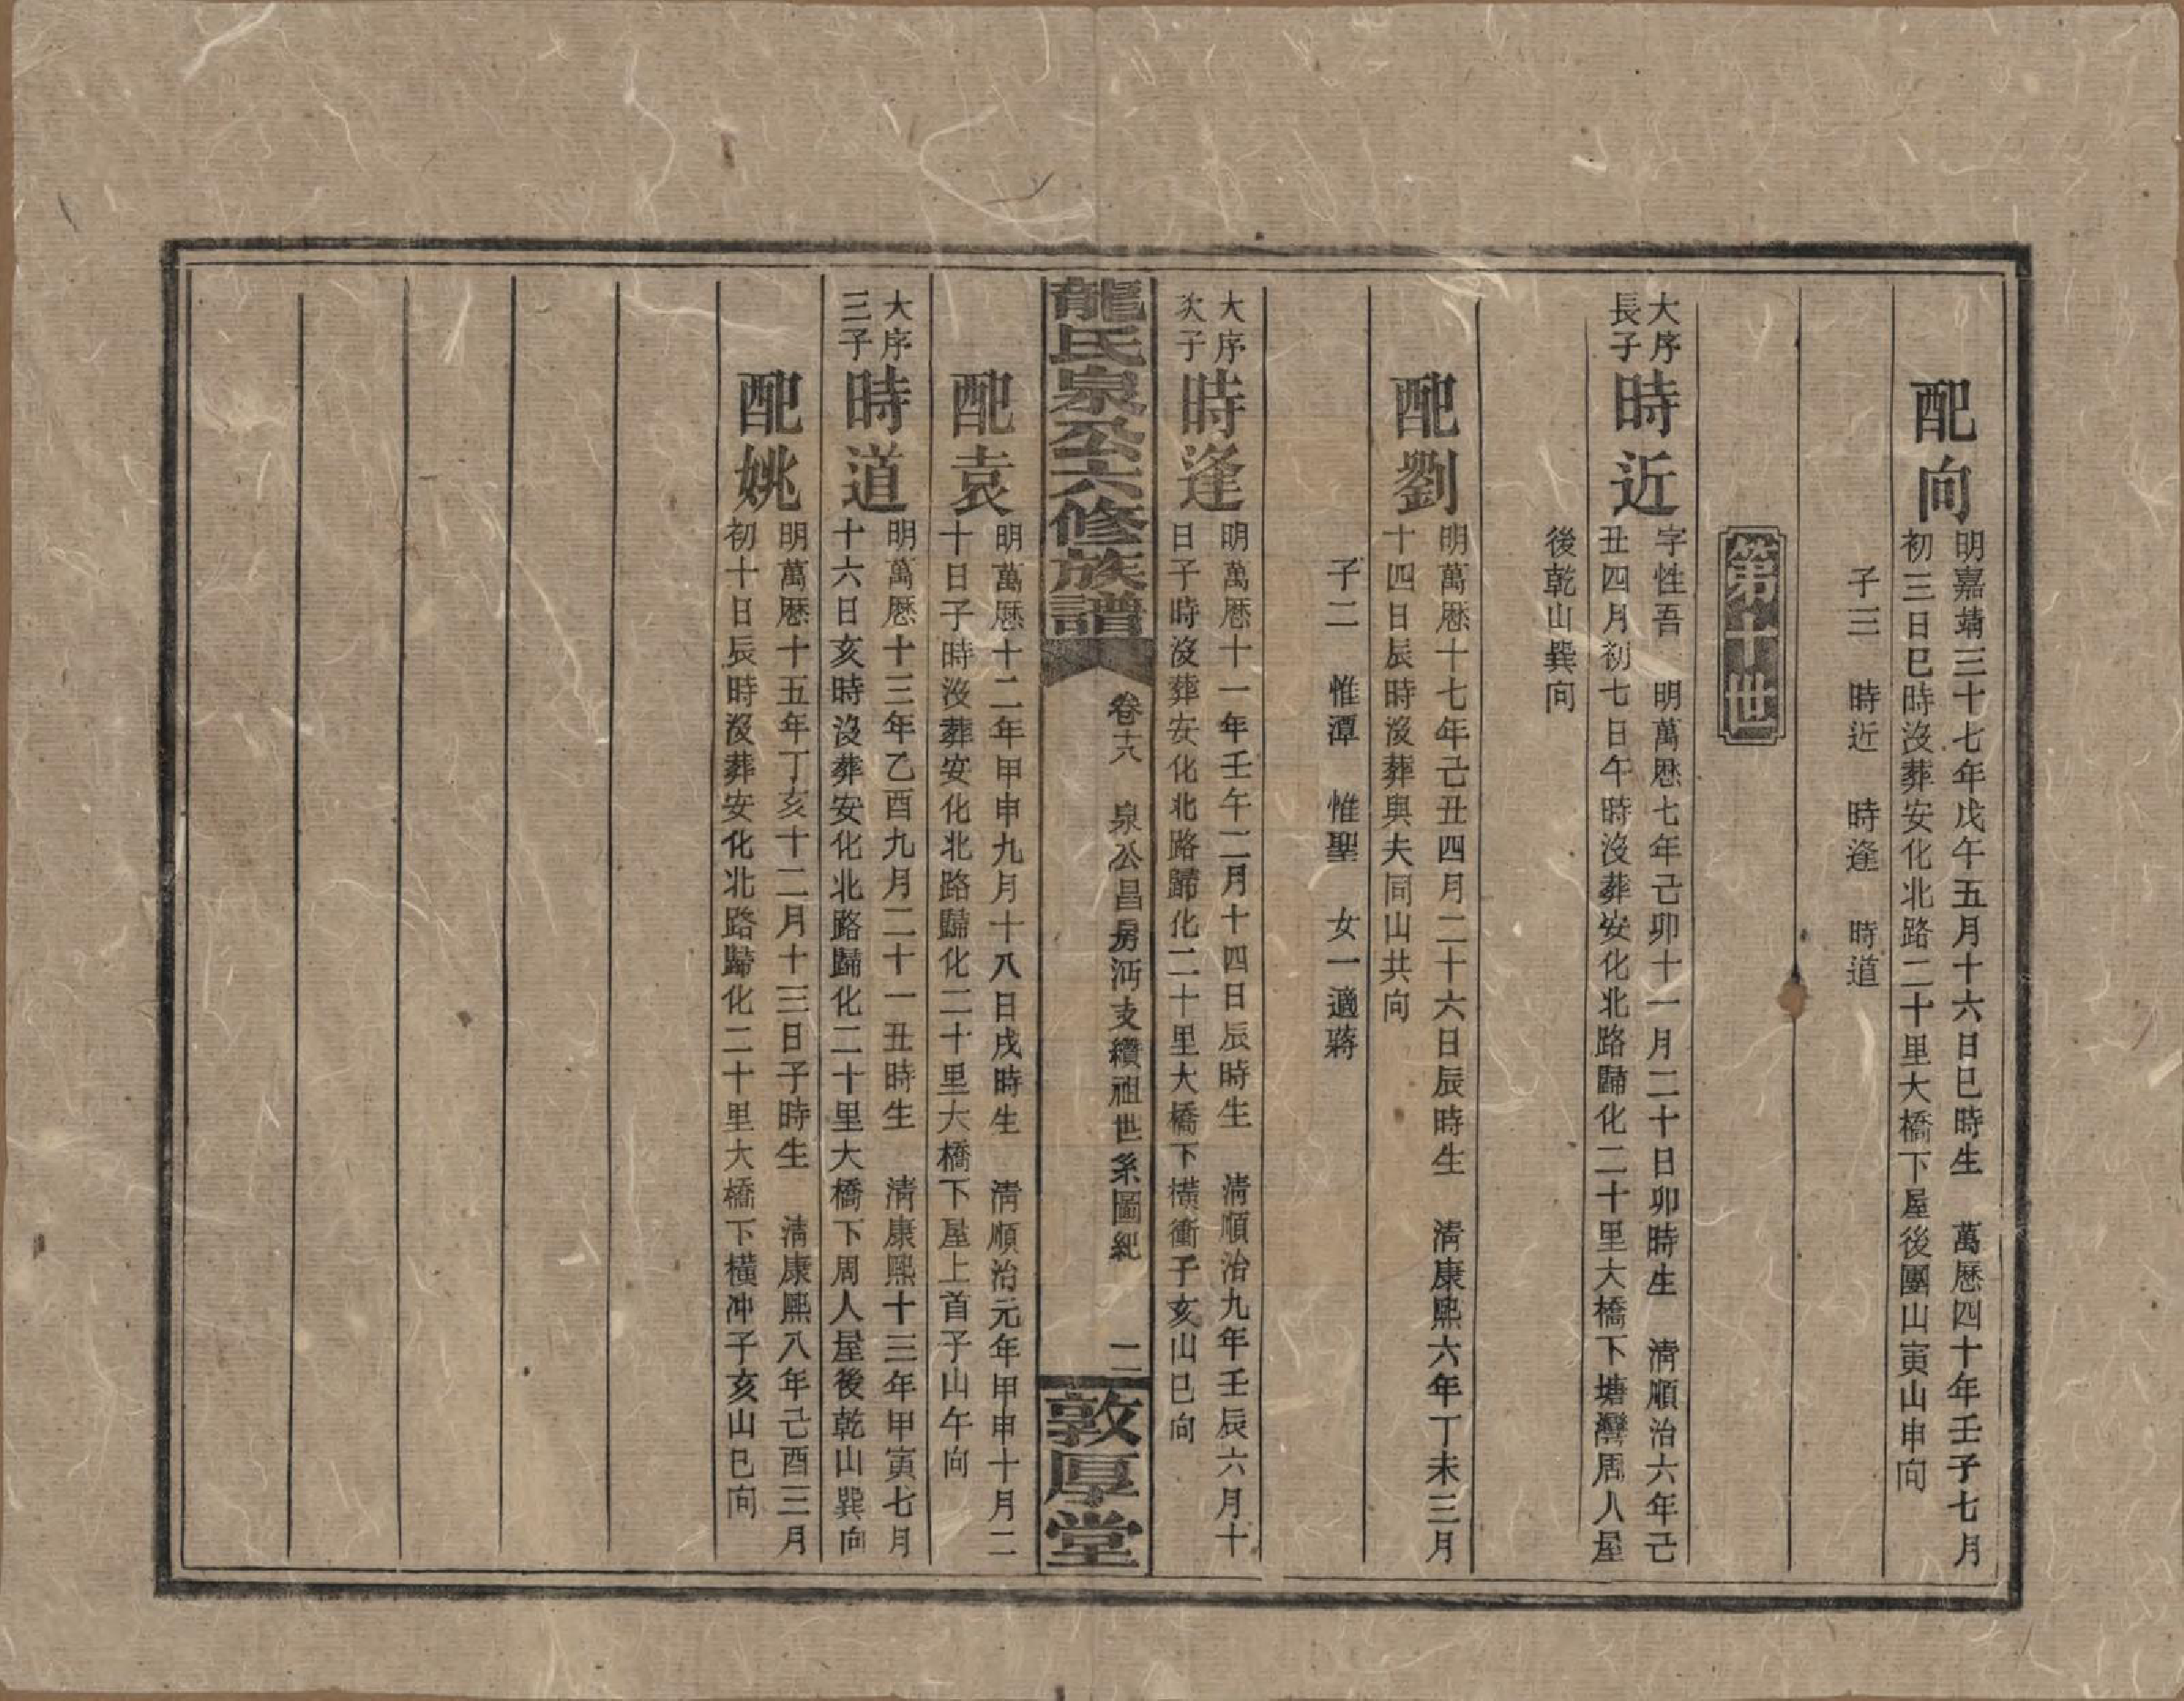 配向
明嘉靖三十七年戊午五月十六日巳時生　萬曆四十年壬子七月
初三日巳時沒葬安化北路二十里大橋下屋後團山寅山申向
子三　時近　時逢　時道
第十世
大序
長子
時近
字性吾　明萬曆七年己卯十一月二十日卯時生　清順治六年己
丑四月初七日午時沒葬安化北路歸化二十里大橋下塘灣周人屋
後乾山巽向
配劉
明萬曆十七年己丑四月二十六日辰時生　清康熙六年丁未三月
十四日辰時沒葬與夫同山共向
子二　惟潭　惟聖　女一適蔣
大序
次子
時逢
明萬曆十一年壬午二月十四日辰時生　清順治九年壬辰六月十
日子時沒葬安化北路歸化二十里大橋下橫衝子亥山巳向
龍氏泉公六修族譜
卷十六　泉公昌房沔支纘祖世系圖紀　二
敦厚堂
配袁
明萬曆十二年甲申九月十八日戌時生　清順治元年甲申十月二
十日子時沒葬安化北路歸化二十里大橋下屋上首子山午向
大序
三子
時道
明萬曆十三年乙酉九月二十一丑時生　清康熙十三年甲寅七月
十六日亥時沒葬安化北路歸化二十里大橋下周人屋後乾山巽向
配姚
明萬曆十五年丁亥十二月十三日子時生　清康熙八年己酉三月
初十日辰時沒葬安化北路歸化二十里大橋下橫冲子亥山巳向